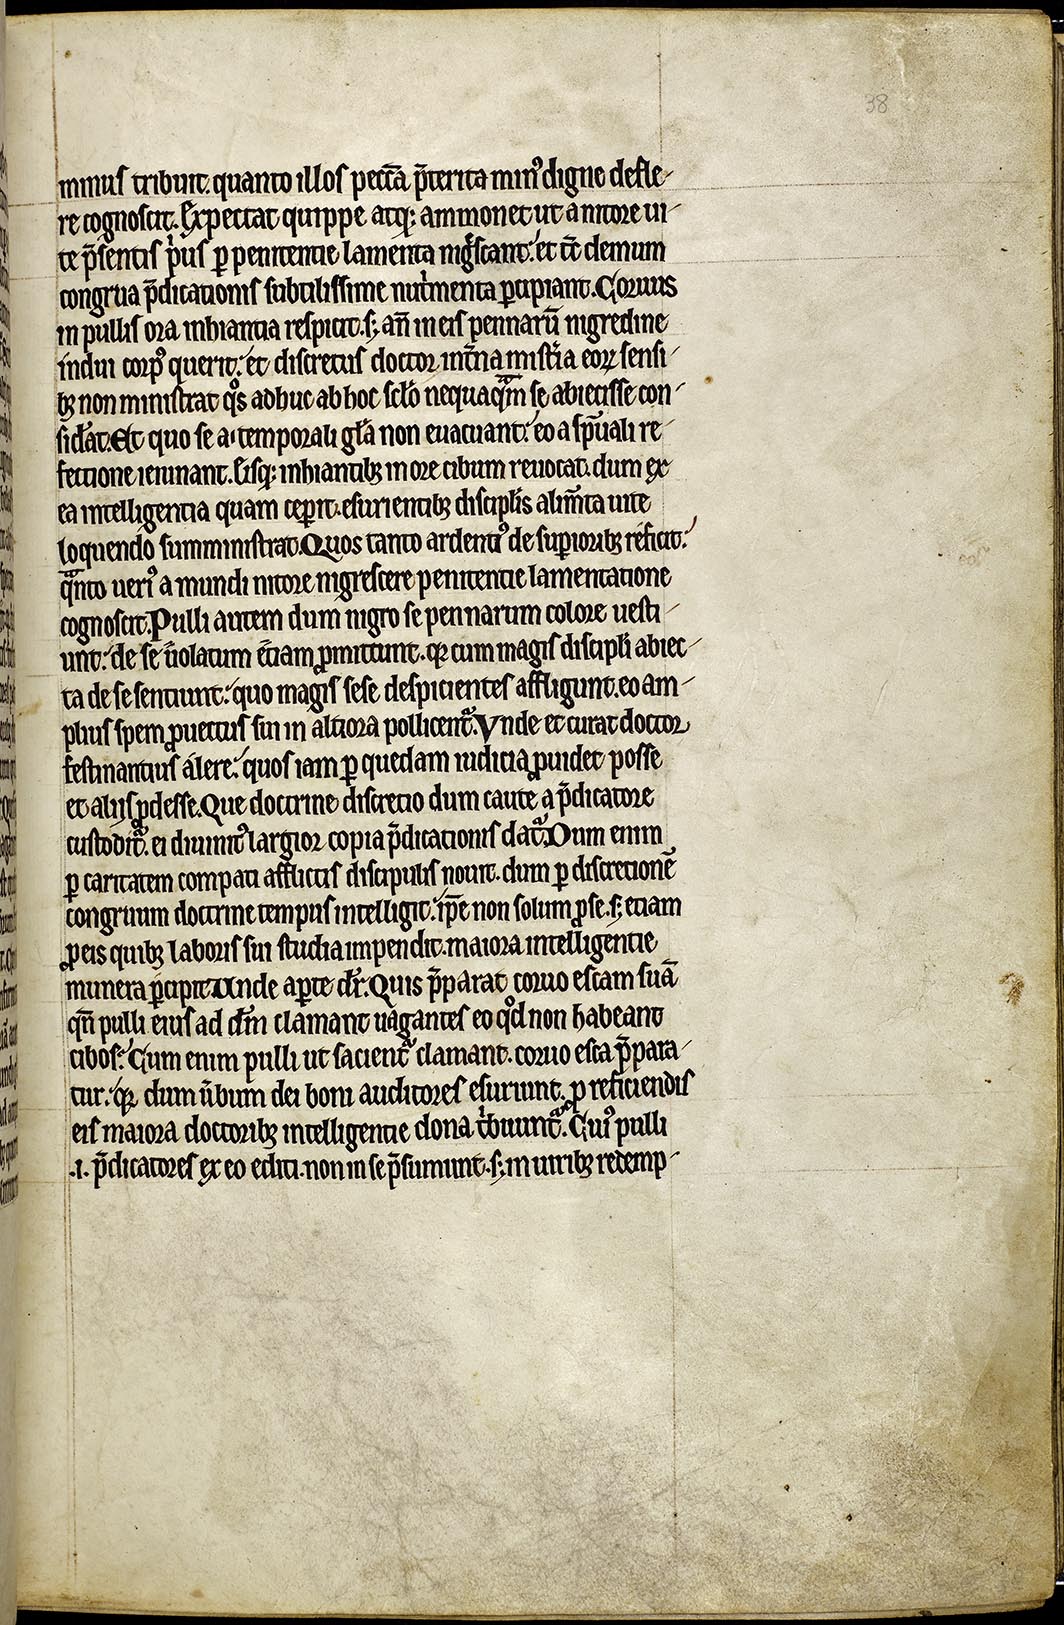 38
minus tribuit. quanto illos peccā p̄terita min᷒ digne defle-
re cognoscit. Expectat quippe atq; ammonet ut a nitore ui-
te p̄sentis pͥus ꝑ penitentie lamenta nigͤscant. et tc̄ demum
congrua p̄dicationis subtilissime nutͥmenta ꝑcipiant. Coruus
in pullis ora inhiantia respicit. s; an̄ in eis pennarū nigredine
indui corp᷒ querit. et discretus doctor int̄na mist̄ia eoꝝ sensi-
bꝫ non ministrat qͦs adhuc ab hoc sc̄lo nequaqᵃm se abiecisse con-
sid̄at. Et quo se a temporali gl̄a non euacuant. eo a sp̄uali re-
fectione ieiunant. Eisq; inhiantibꝫ in ore cibum reuocat. dum ex
ea intelligentia quam cepit. esurientibꝫ discipl̄is alim̄ta uite
loquendo sumministrat. Quos tanto ardenti᷒ de suꝑioribꝫ reficit.
qᵃnto ueri᷒ a mundi nitore nigrescere penitentie lamentatione
cognoscit. Pulli autem dum nigro se pennarum colore uesti-
unt. de se u̅olatum etiam ꝓmittunt. qꝛ cum magis discipl̄i abiec-
ta de se sentiunt. quo magis sese despicientes affligunt. eo am-
plius spem ꝓuectus sui in altiora pollicentᷣ. Vnde et curat doctor
festinantius alere. quos iam ꝑ quedam iudicia ꝓuidet posse
et alijs ꝓdesse. Que doctrine discretio dum caute a p̄dicatore
custoditᷣ. ei diuinit᷒ largior copia p̄dicationis datᷣ. Dum enim
ꝑ caritatem compati afflictis discipulis nouit. dum ꝑ discretionē
congruum doctrine tempus intelligit. ip̄e non solum ꝓ se. s; etiam
ꝓ eis quibꝫ laboris sui studia impendit. maiora intelligentie
munera ꝑcipit. Unde aꝑte dr̄. Quis p̄parat coruo escam suā
qn̄ pulli eius ad dm̄ clamant uagantes eo qͦd non habeant
cibos. Cum enim pulli ut sacientᷣ clamant. coruo esca p̄para-
tur. qꝛ dum u̅bum dei boni auditores esuriunt. ꝓ reficiendis
eis maiora doctoribꝫ intelligentie dona tͥbuuntᷣ. Cui᷒ pulli
.i. p̄dicatores ex eo editi. non in se p̄sumunt. s; in uiribꝫ redemp-